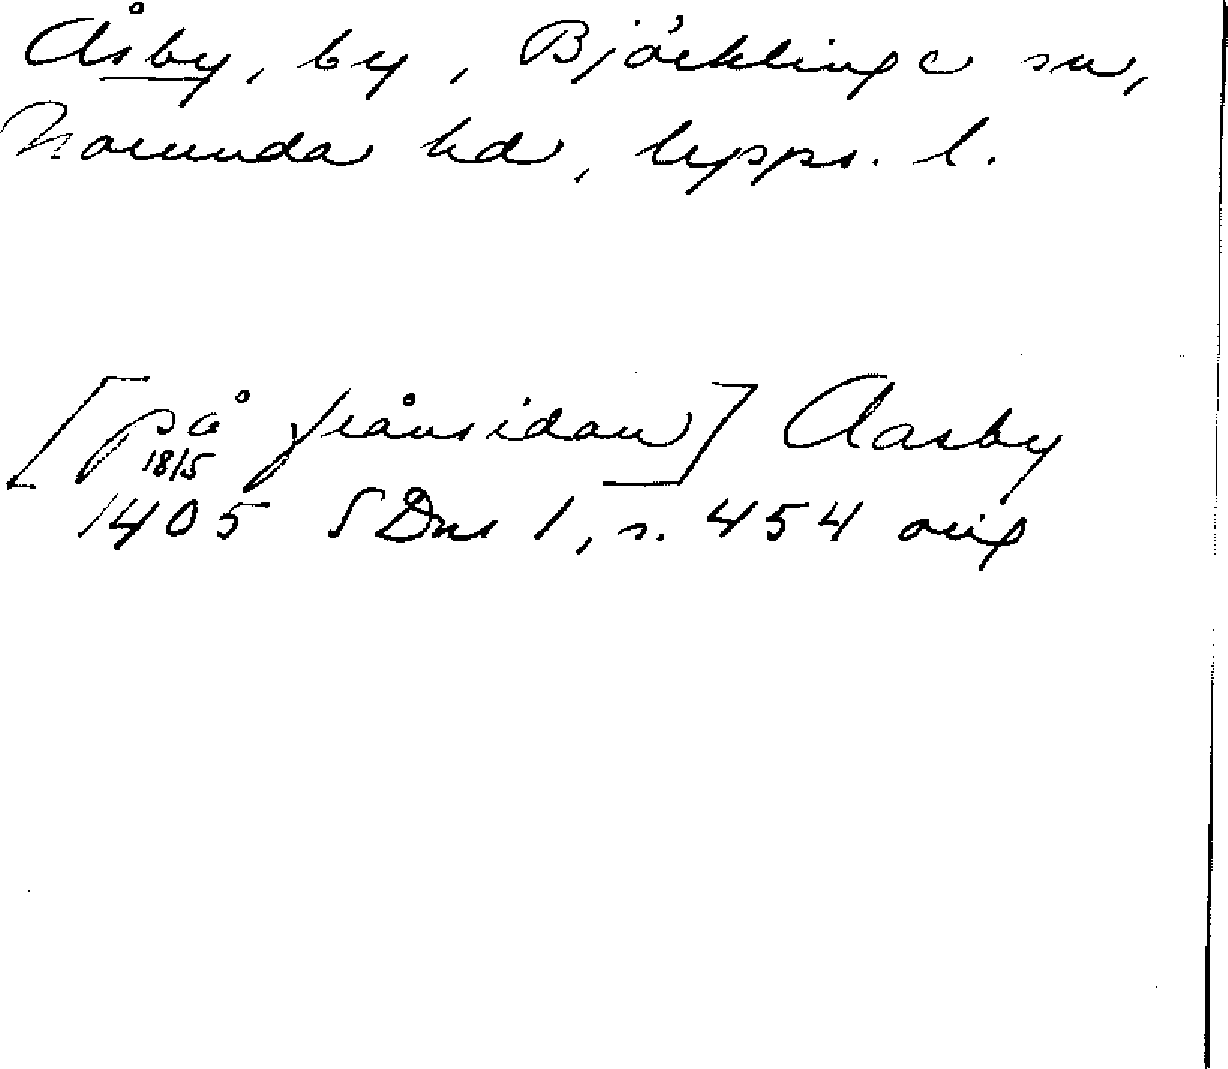 Åsby, by, Björklinge sn,
Norunda hd, Upps. l.
[på frånsidan] Aasby
18/5
1405 SDns 1, s. 454 orig